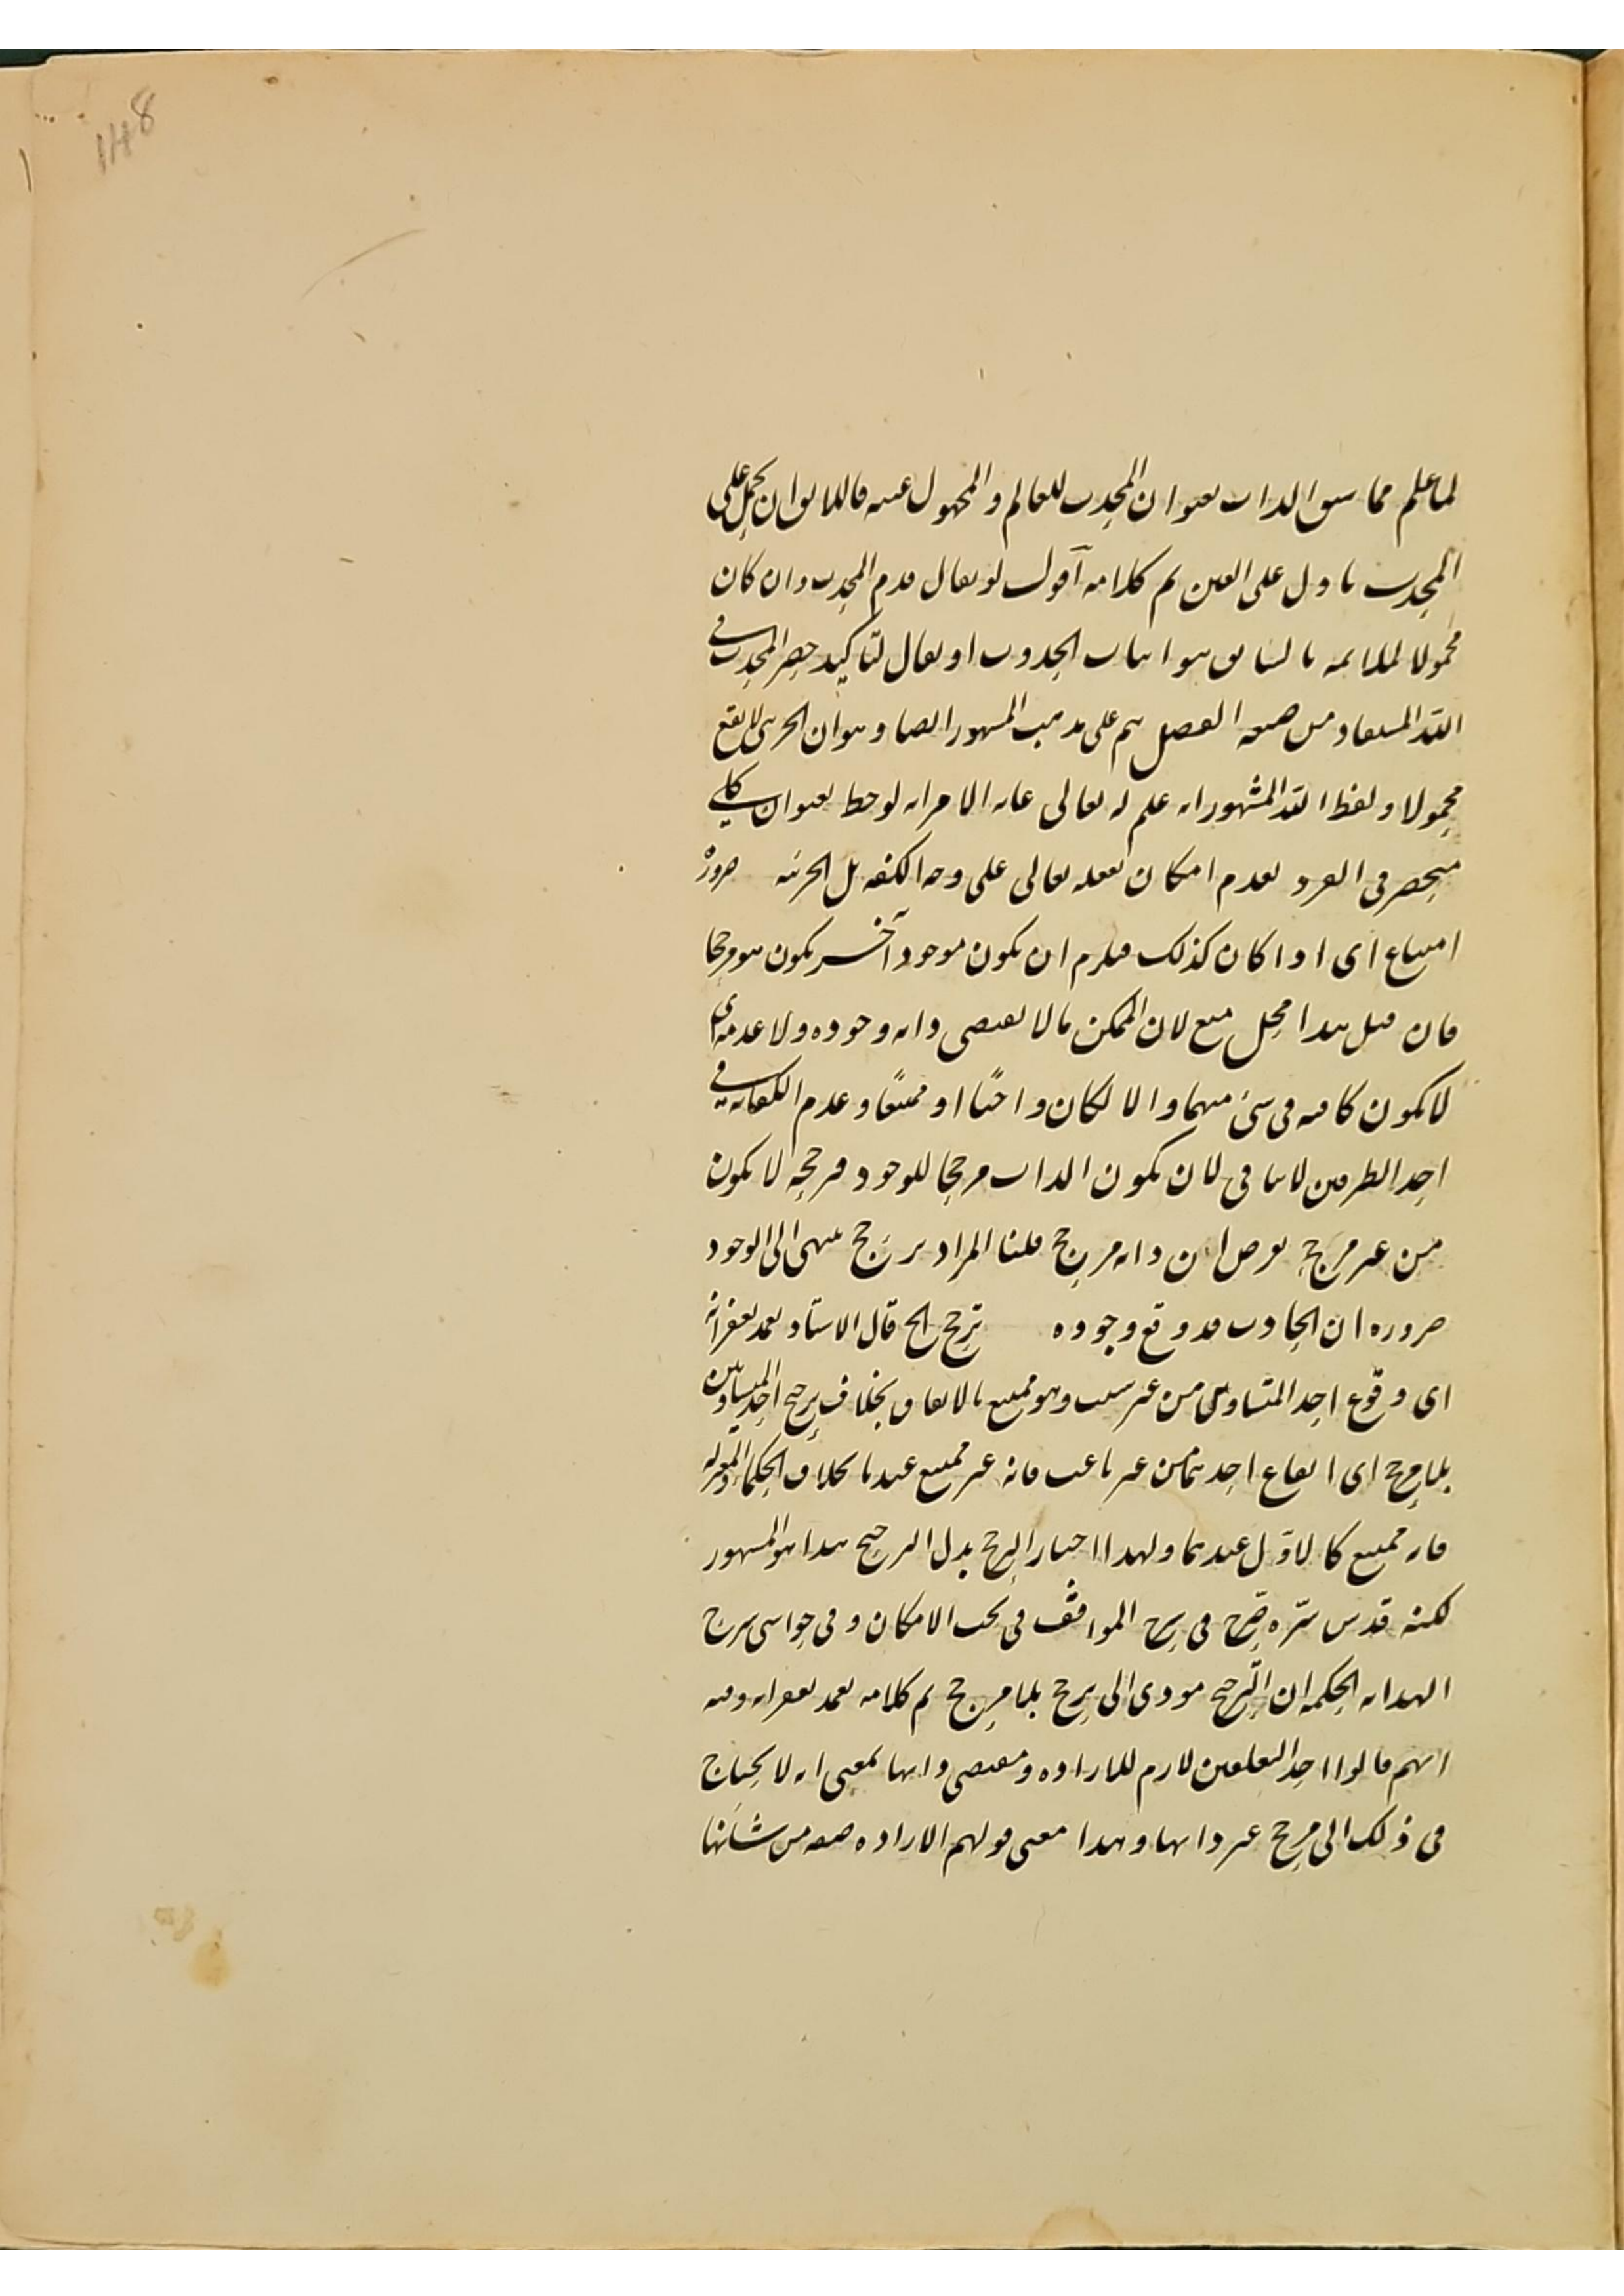 148
لما علم مما سبق الذات بعنوان المحدث للعالم والمجهول عينه فاللائق ان يحمل على
المحدث ما دل على العين تم كلامه اقول لو يقال قدم المحدث وان كان
محمولا لملائمه بالسابق هو اثبات الحدوث او يقال لتاكيد حصر المحدث في
الله المستفاد من صيغه الفصل ثم على مذهب المشهور ايضا وهو ان الجزئى لا يقع
محمولا ولفظ الله المشهور انه علم له تعالى غايه الامر انه لوحظ بعنوان كلي
منحصر فى الفرد لعدم امكان تعقله تعالى على وجه الكنه بل الجزئيه ضرورة
امتناع اى اذا كان كذلك فيلزم ان يكون موجود آخر يكون هو مرجحا
فان قيل هذا محل منع لان الممكن ما لا يقتضى ذاته وجوده ولا عدمه اى
لا يكون كافيه فى شئ منهما والا لكان واجبًا او ممتنعًا وعدم الكفايه في
احد الطرفين لا ينافى لان يكون الذات مرجحا للوجود فرجحه لا يكون
من غير مرجح بفرض ان ذاته مرجح قلنا المراد ترجح ينتهى الى الوجود
ضروره ان الحادث قد وقع وجوده ترجح الخ قال الاستاد تغمد بغفرانه
اى وقوع احد المتساويين من غير سبب وهو ممتنع بالاتفاق بخلاف ترجيح احد المتساويين
بلا مرجح اى ايقاع احدهما من غير باعث فانه غير ممتنع عندنا بخلاف الحكما والمعتزله
فانه ممتنع كالاوّل عندهما ولهذا اختار الترجح بدل الترجيح هذا هو المشهور
لكنه قدس سّره صّرح فى شرح المواقف فى بحث الامكان وفى حواشى شرح
الهدايه الحكميه ان الترجيح مودى الى ترجح بلا مرجح تم كلامه تغمد بغفرانه وفيه
انهم قالوا احد التعلقين لازم للاراده ومقتضى ذاتها بمعنى انه لا يحتاج
فى ذلك الى مرجح غير ذاتها وهذا معنى قولهم الاراده صفه من شأنها